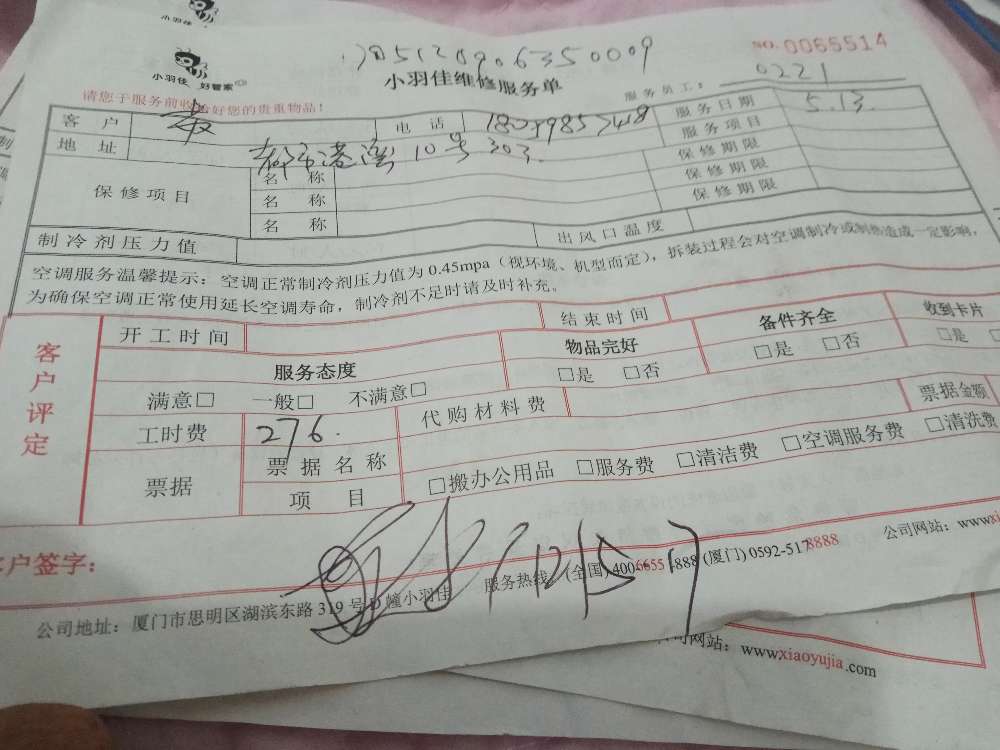 小羽佳
小羽佳 好管家
NO.0065514
小羽佳维修服务单
服务员工: 0221
请您于服务前收拾好您的贵重物品!
客户 电话 服务日期 5.13.
地址 10号 303. 服务项目
保修项目 名称 保修期限
名称 保修期限
名称 保修期限
制冷剂压力值 出风口温度
空调服务温馨提示: 空调正常制冷剂压力值为 0.45mpa (视环境、机型而定), 拆装过程会对空调制冷或制热造成一定影响,
为确保空调正常使用延长空调寿命, 制冷剂不足时请及时补充。
客户评定
开工时间 结束时间
服务态度 物品完好 备件齐全 收到卡片
满意□ 一般□ 不满意□ □是 □否 □是 □否 □是
工时费 276. 代购材料费 票据金额
票据 票据名称 □搬办公用品 □服务费 □清洁费 □空调服务费 □清洗费
项目
客户签字:
公司地址: 厦门市思明区湖滨东路 319 号 D 幢小羽佳 服务热线: (全国) 400-6655-888 (厦门) 0592-5178888 公司网站:
公司网站: www.xiaoyujia.com